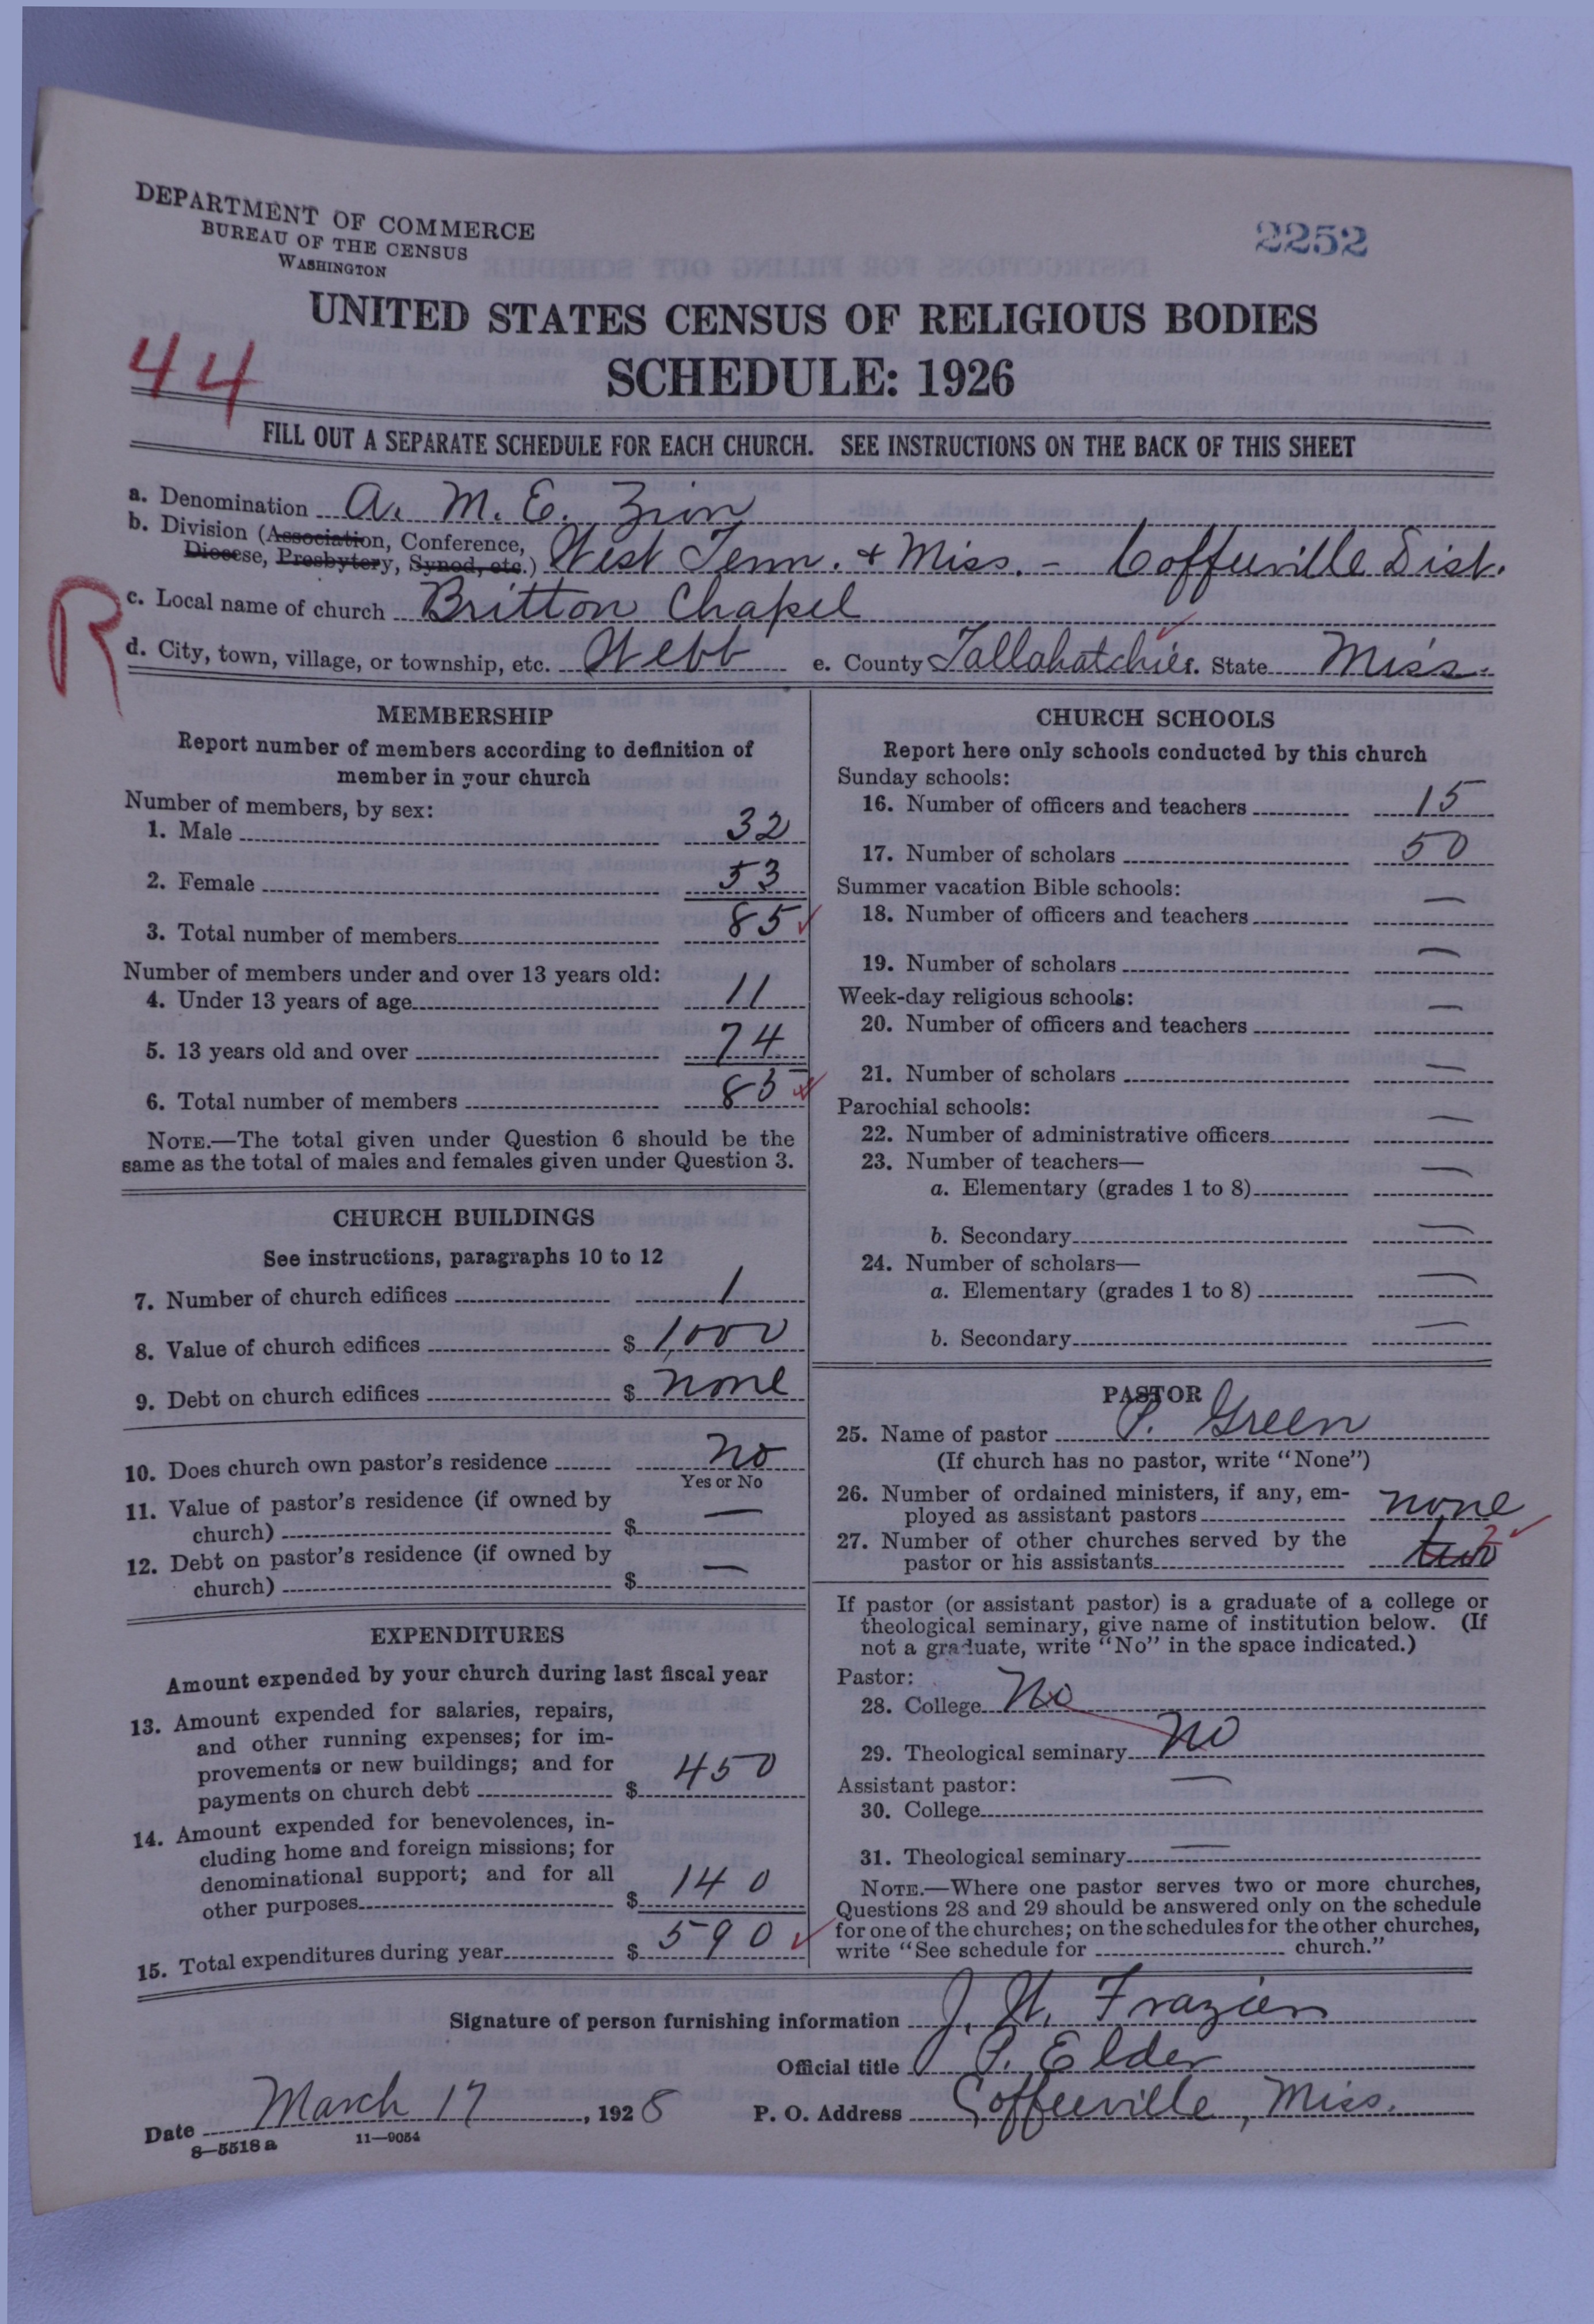 DEPARTMENT OF COMMERCE
BUREAU OF THE CENSUS
WASHINGTON
2252
UNITED STATES CENSUS OF RELIGIOUS BODIES
SCHEDULE: 1926
44
FILL OUT A SEPARATE SCHEDULE FOR EACH CHURCH. SEE INSTRUCTIONS ON THE BACK OF THIS SHEET
a. Denomination A. M. E. Zion
b. Division (Association, Conference,
Diocese, Presbytery, Synod, etc.) West Tenn. + Miss. - Coffeeville Dist.
R
c. Local name of church Britton Chapel
d. City, town, village, or township, etc. Webb e. County Tallahatchie f. State Miss.
MEMBERSHIP
Report number of members according to definition of
member in your church
Number of members, by sex:
1. Male 32
2. Female 53
3. Total number of members 85
Number of members under and over 13 years old:
4. Under 13 years of age 11
5. 13 years old and over 74
6. Total number of members 85
NOTE.—The total given under Question 6 should be the
same as the total of males and females given under Question 3.
CHURCH BUILDINGS
See instructions, paragraphs 10 to 12
7. Number of church edifices 1
8. Value of church edifices $ 1,000
9. Debt on church edifices $ none
10. Does church own pastor's residence no
Yes or No
11. Value of pastor's residence (if owned by
church) $ —
12. Debt on pastor's residence (if owned by
church) $ —
EXPENDITURES
Amount expended by your church during last fiscal year
13. Amount expended for salaries, repairs,
and other running expenses; for im-
provements or new buildings; and for
payments on church debt $ 450
14. Amount expended for benevolences, in-
cluding home and foreign missions; for
denominational support; and for all
other purposes $ 140
15. Total expenditures during year $ 590
CHURCH SCHOOLS
Report here only schools conducted by this church
Sunday schools:
16. Number of officers and teachers 15
17. Number of scholars 50
Summer vacation Bible schools:
18. Number of officers and teachers —
19. Number of scholars —
Week-day religious schools:
20. Number of officers and teachers —
21. Number of scholars —
Parochial schools:
22. Number of administrative officers —
23. Number of teachers—
a. Elementary (grades 1 to 8) —
b. Secondary —
24. Number of scholars—
a. Elementary (grades 1 to 8) —
b. Secondary —
PASTOR
25. Name of pastor P. Green
(If church has no pastor, write "None")
26. Number of ordained ministers, if any, em-
ployed as assistant pastors none
27. Number of other churches served by the
pastor or his assistants two 2
If pastor (or assistant pastor) is a graduate of a college or
theological seminary, give name of institution below. (If
not a graduate, write "No" in the space indicated.)
Pastor:
28. College No
29. Theological seminary No
Assistant pastor:
30. College —
31. Theological seminary —
NOTE.—Where one pastor serves two or more churches,
Questions 28 and 29 should be answered only on the schedule
for one of the churches; on the schedules for the other churches,
write "See schedule for church."
Signature of person furnishing information J. W. Frazier
Official title P. Elder
Date March 17, 1928 P. O. Address Coffeeville, Miss.
8—5518 a 11—9054